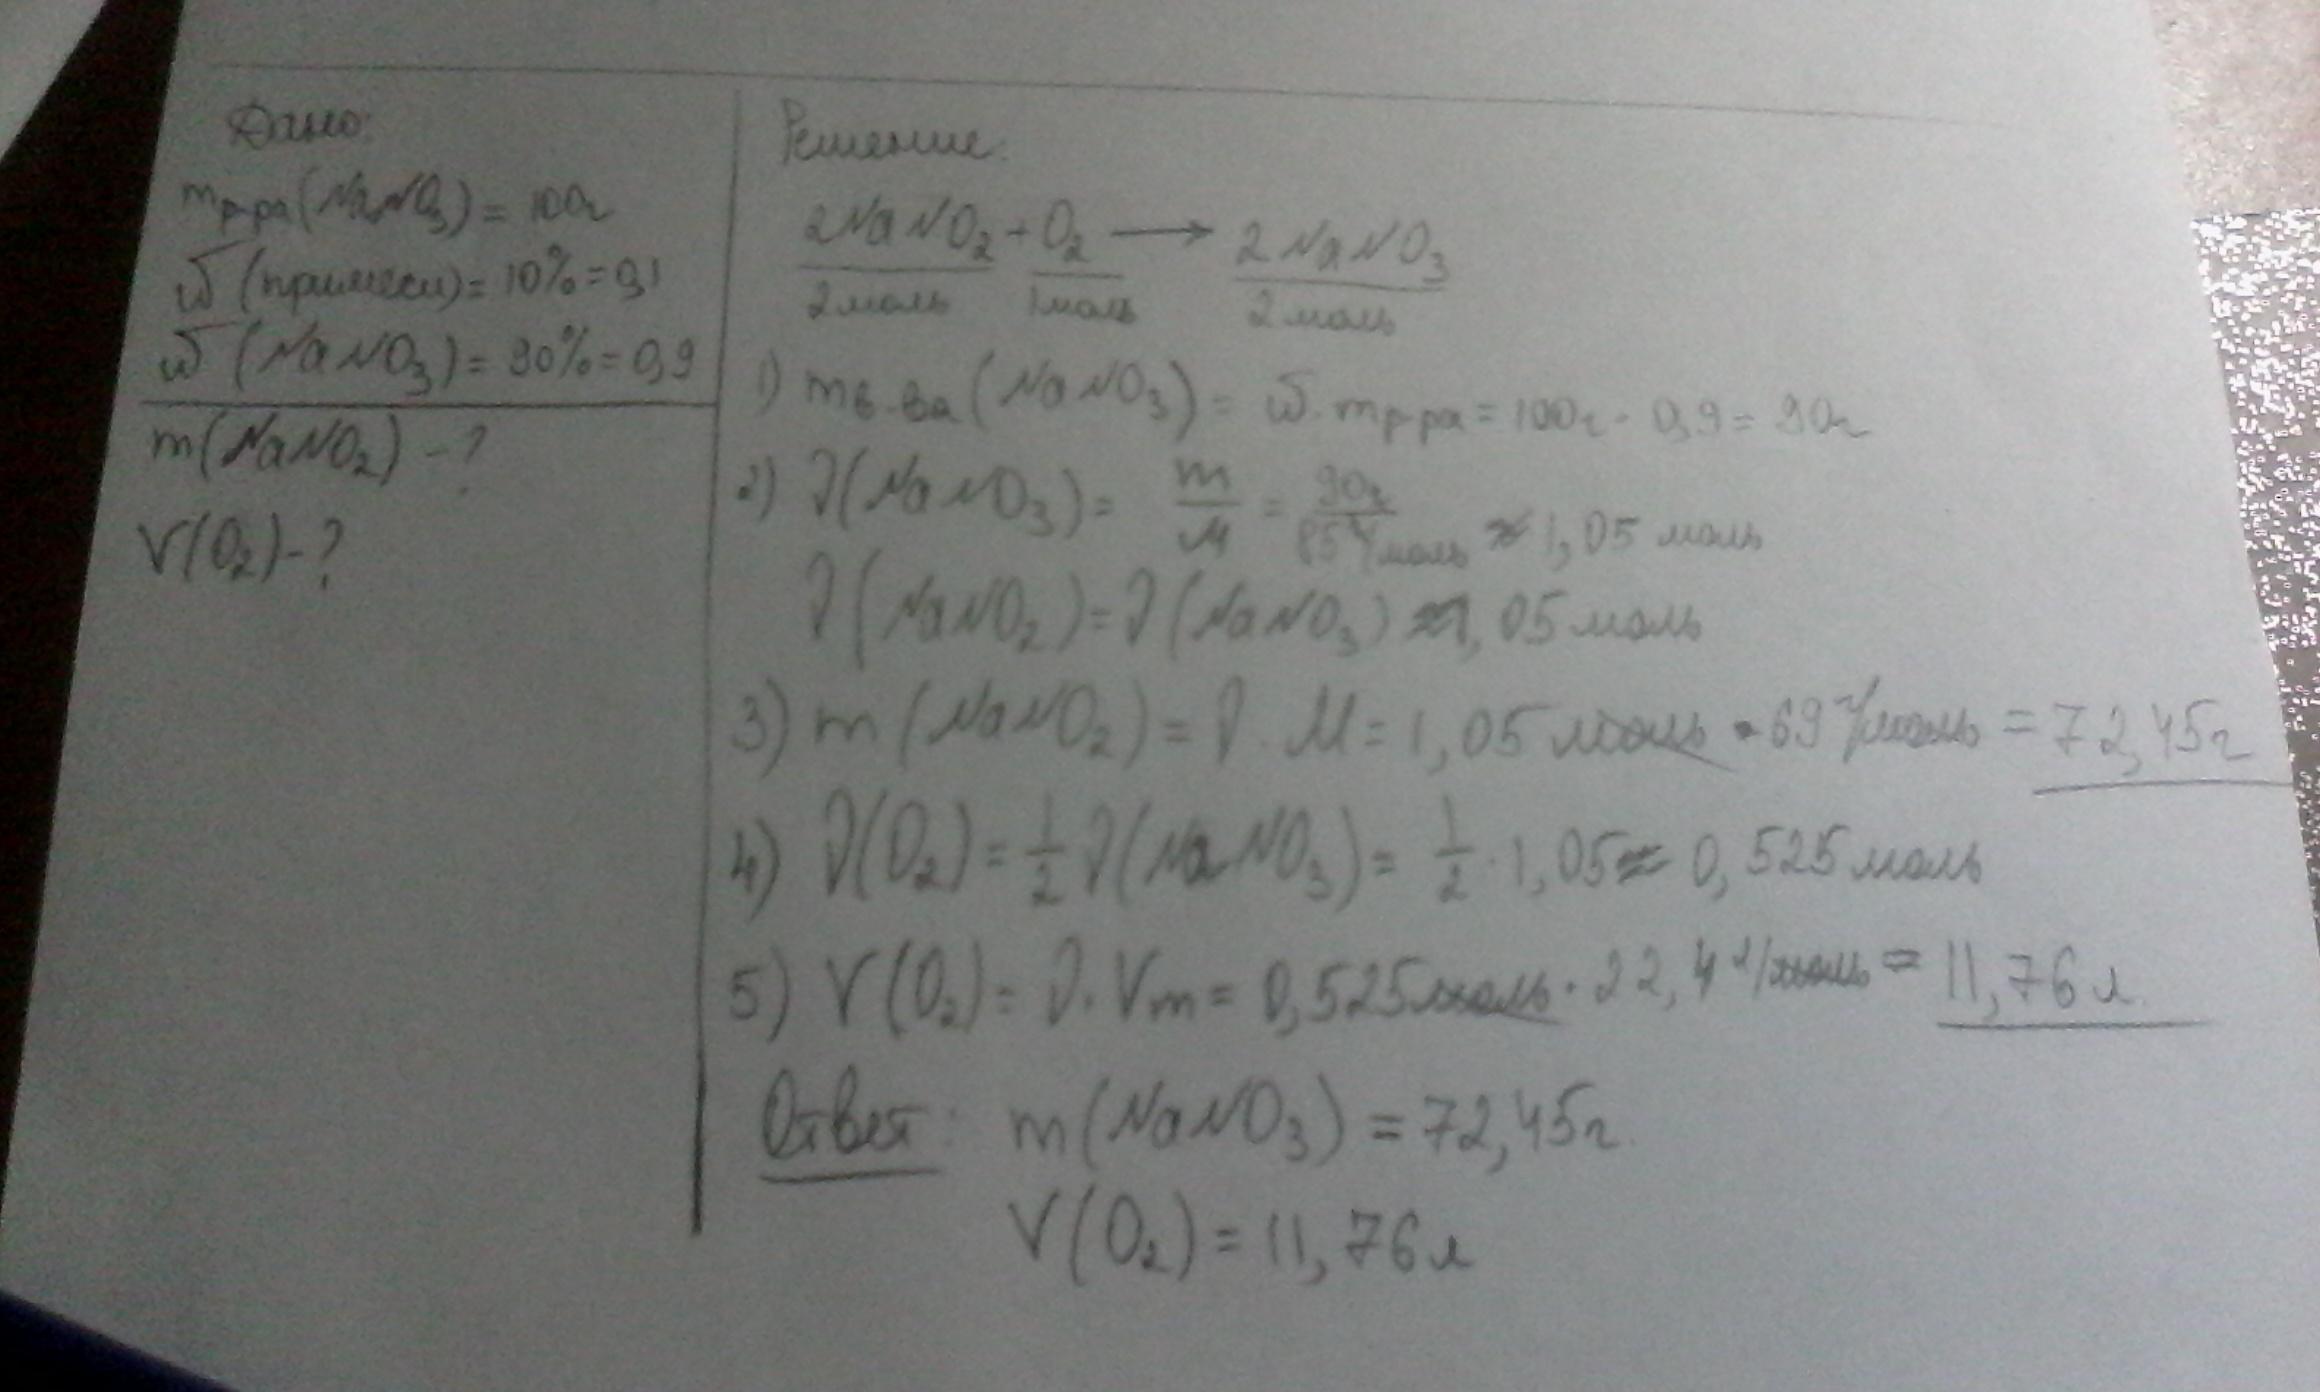 Дано:
mр-ра(NaNO₃) = 100г
ω (примеси) = 10% = 0,1
ω (NaNO₃) = 90% = 0,9
m(NaNO₂) - ?
V(O₂) - ?
Решение:
2NaNO₂ + O₂ → 2NaNO₃
2моль 1моль 2моль
1) mв-ва (NaNO₃) = ω · mр-ра = 100г · 0,9 = 90г
2) ν(NaNO₃) = m/M = 90г/85г/моль ≈ 1,05 моль
ν(NaNO₂) = ν(NaNO₃) ≈ 1,05 моль
3) m(NaNO₂) = ν · M = 1,05 моль · 69 г/моль = 72,45г
4) ν(O₂) = 1/2 ν(NaNO₃) = 1/2 · 1,05 ≈ 0,525 моль
5) V(O₂) = ν · Vm = 0,525 моль · 22,4 л/моль = 11,76 л
Ответ: m(NaNO₃) = 72,45г
V(O₂) = 11,76 л